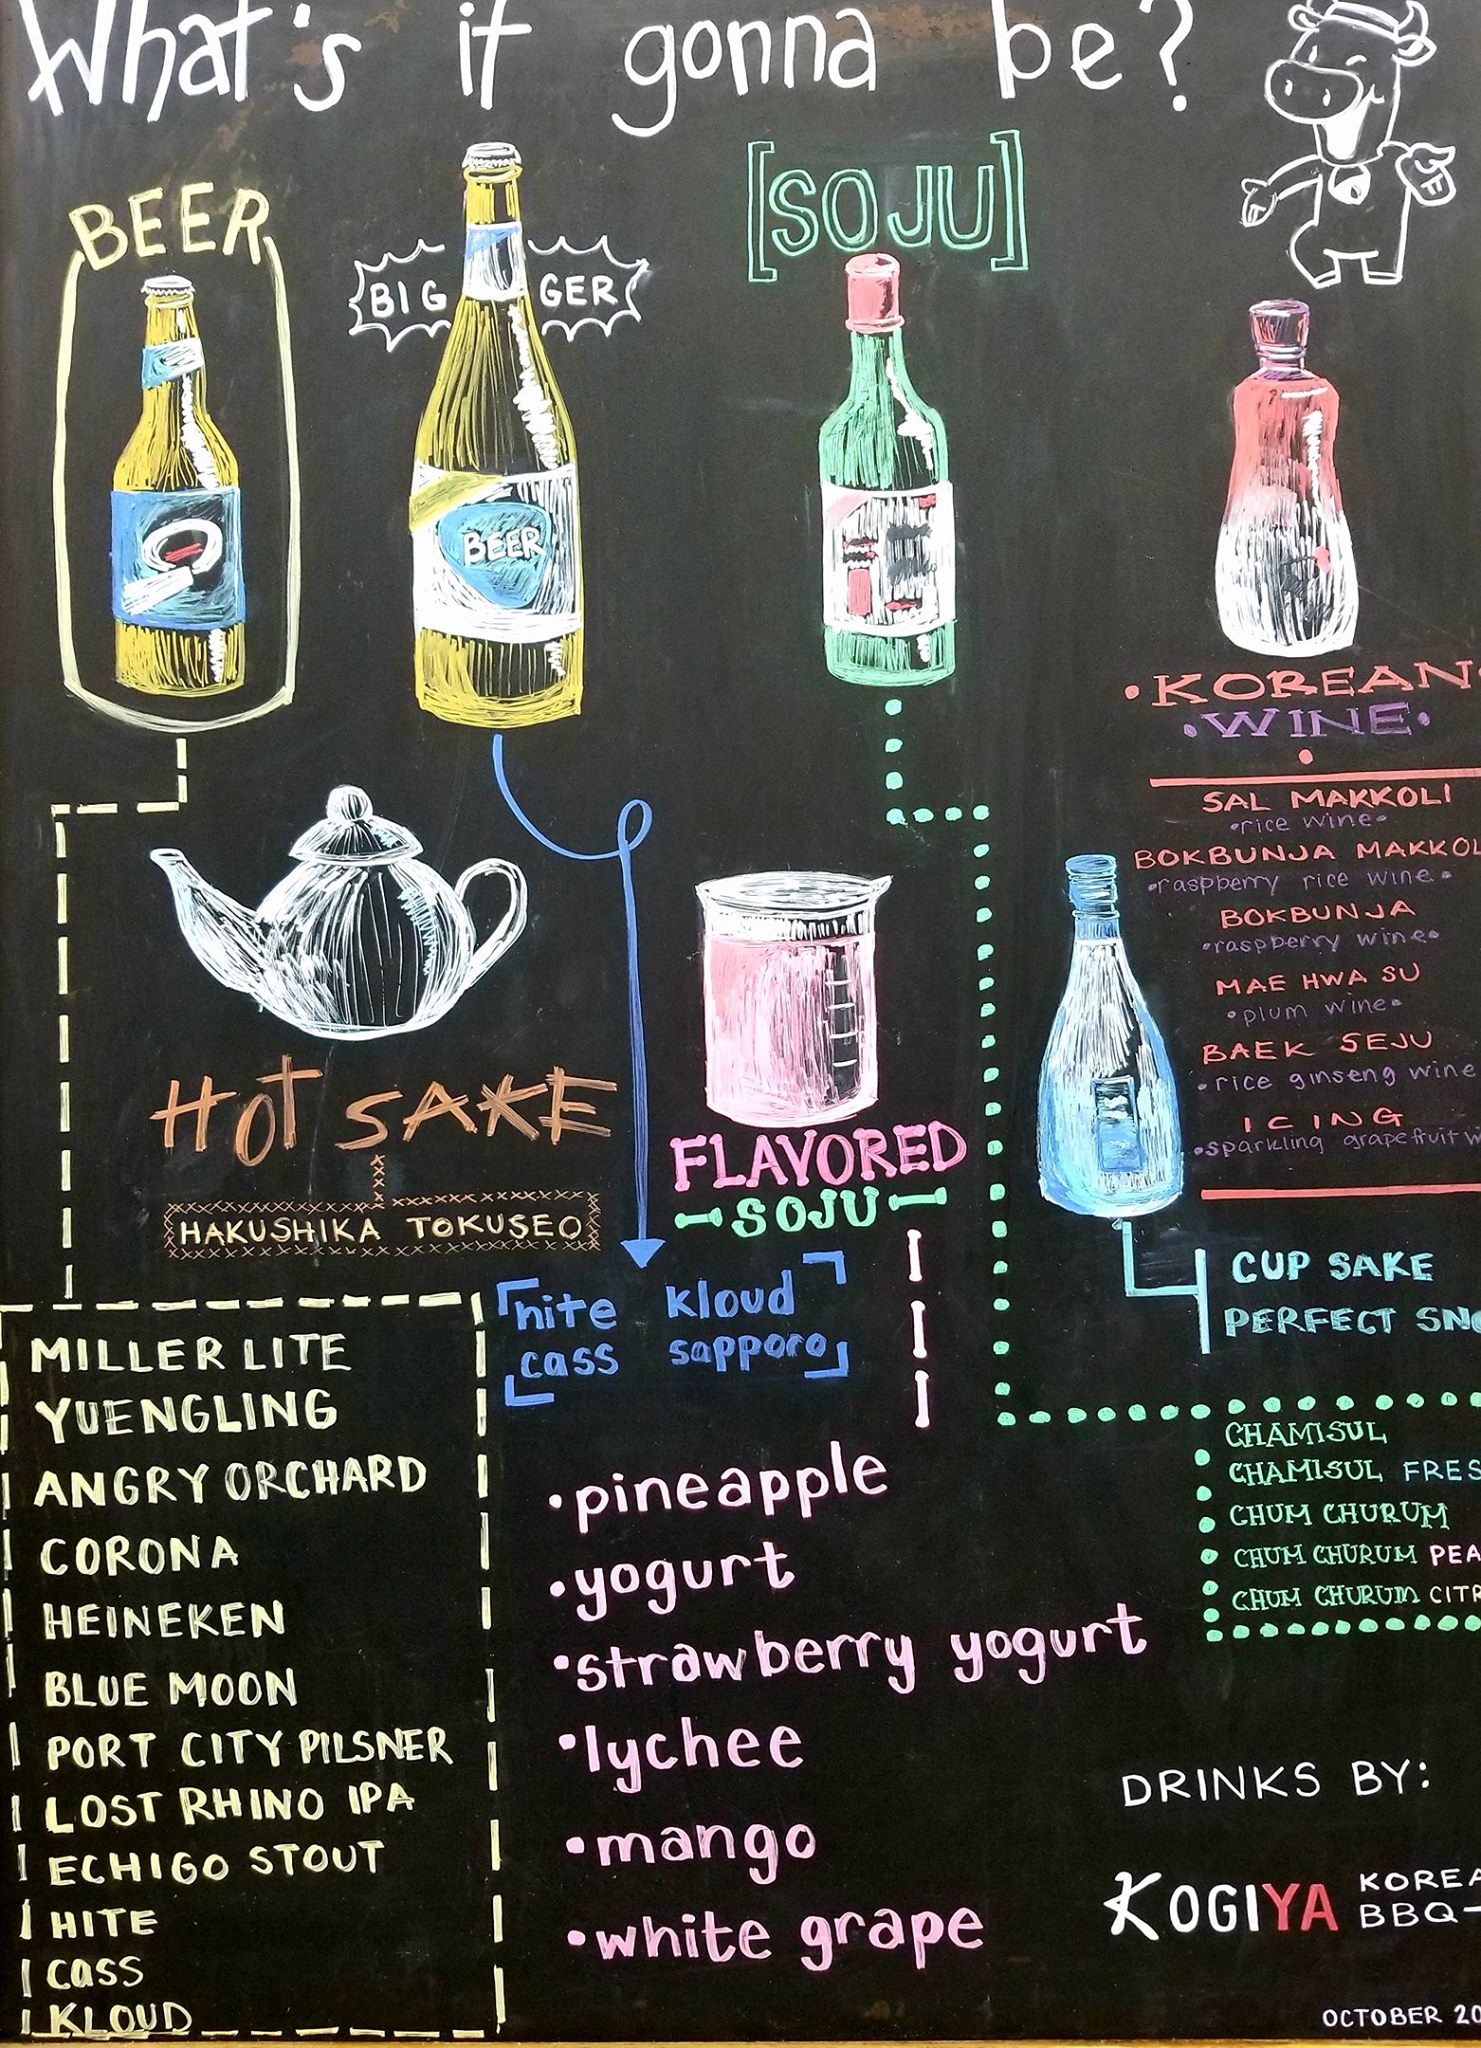 What's it gonna be?
BEER
BIGGER
BEER
[SOJU]
•KOREAN•
•WINE•
SAL MAKKOLI
•rice wine•
BOKBUNJA MAKKOL
•raspberry rice wine•
BOKBUNJA
•raspberry wine•
MAE HWA SU
•plum wine•
BAEK SEJU
•rice ginseng wine
ICING
•sparkling grapefruit w
HOT SAKE
HAKUSHIKA TOKUSEO
FLAVORED
SOJU
CUP SAKE
PERFECT SNO
hite kloud
cass sapporo
MILLER LITE
YUENGLING
ANGRY ORCHARD
CORONA
HEINEKEN
BLUE MOON
PORT CITY PILSNER
LOST RHINO IPA
ECHIGO STOUT
HITE
CASS
KLOUD
•pineapple
•yogurt
•strawberry yogurt
•lychee
•mango
•white grape
CHAMISUL
CHAMISUL FRES
CHUM CHURUM
CHUM CHURUM PEA
CHUM CHURUM CITR
DRINKS BY:
KOGIYA KOREA
BBQ-
OCTOBER 20